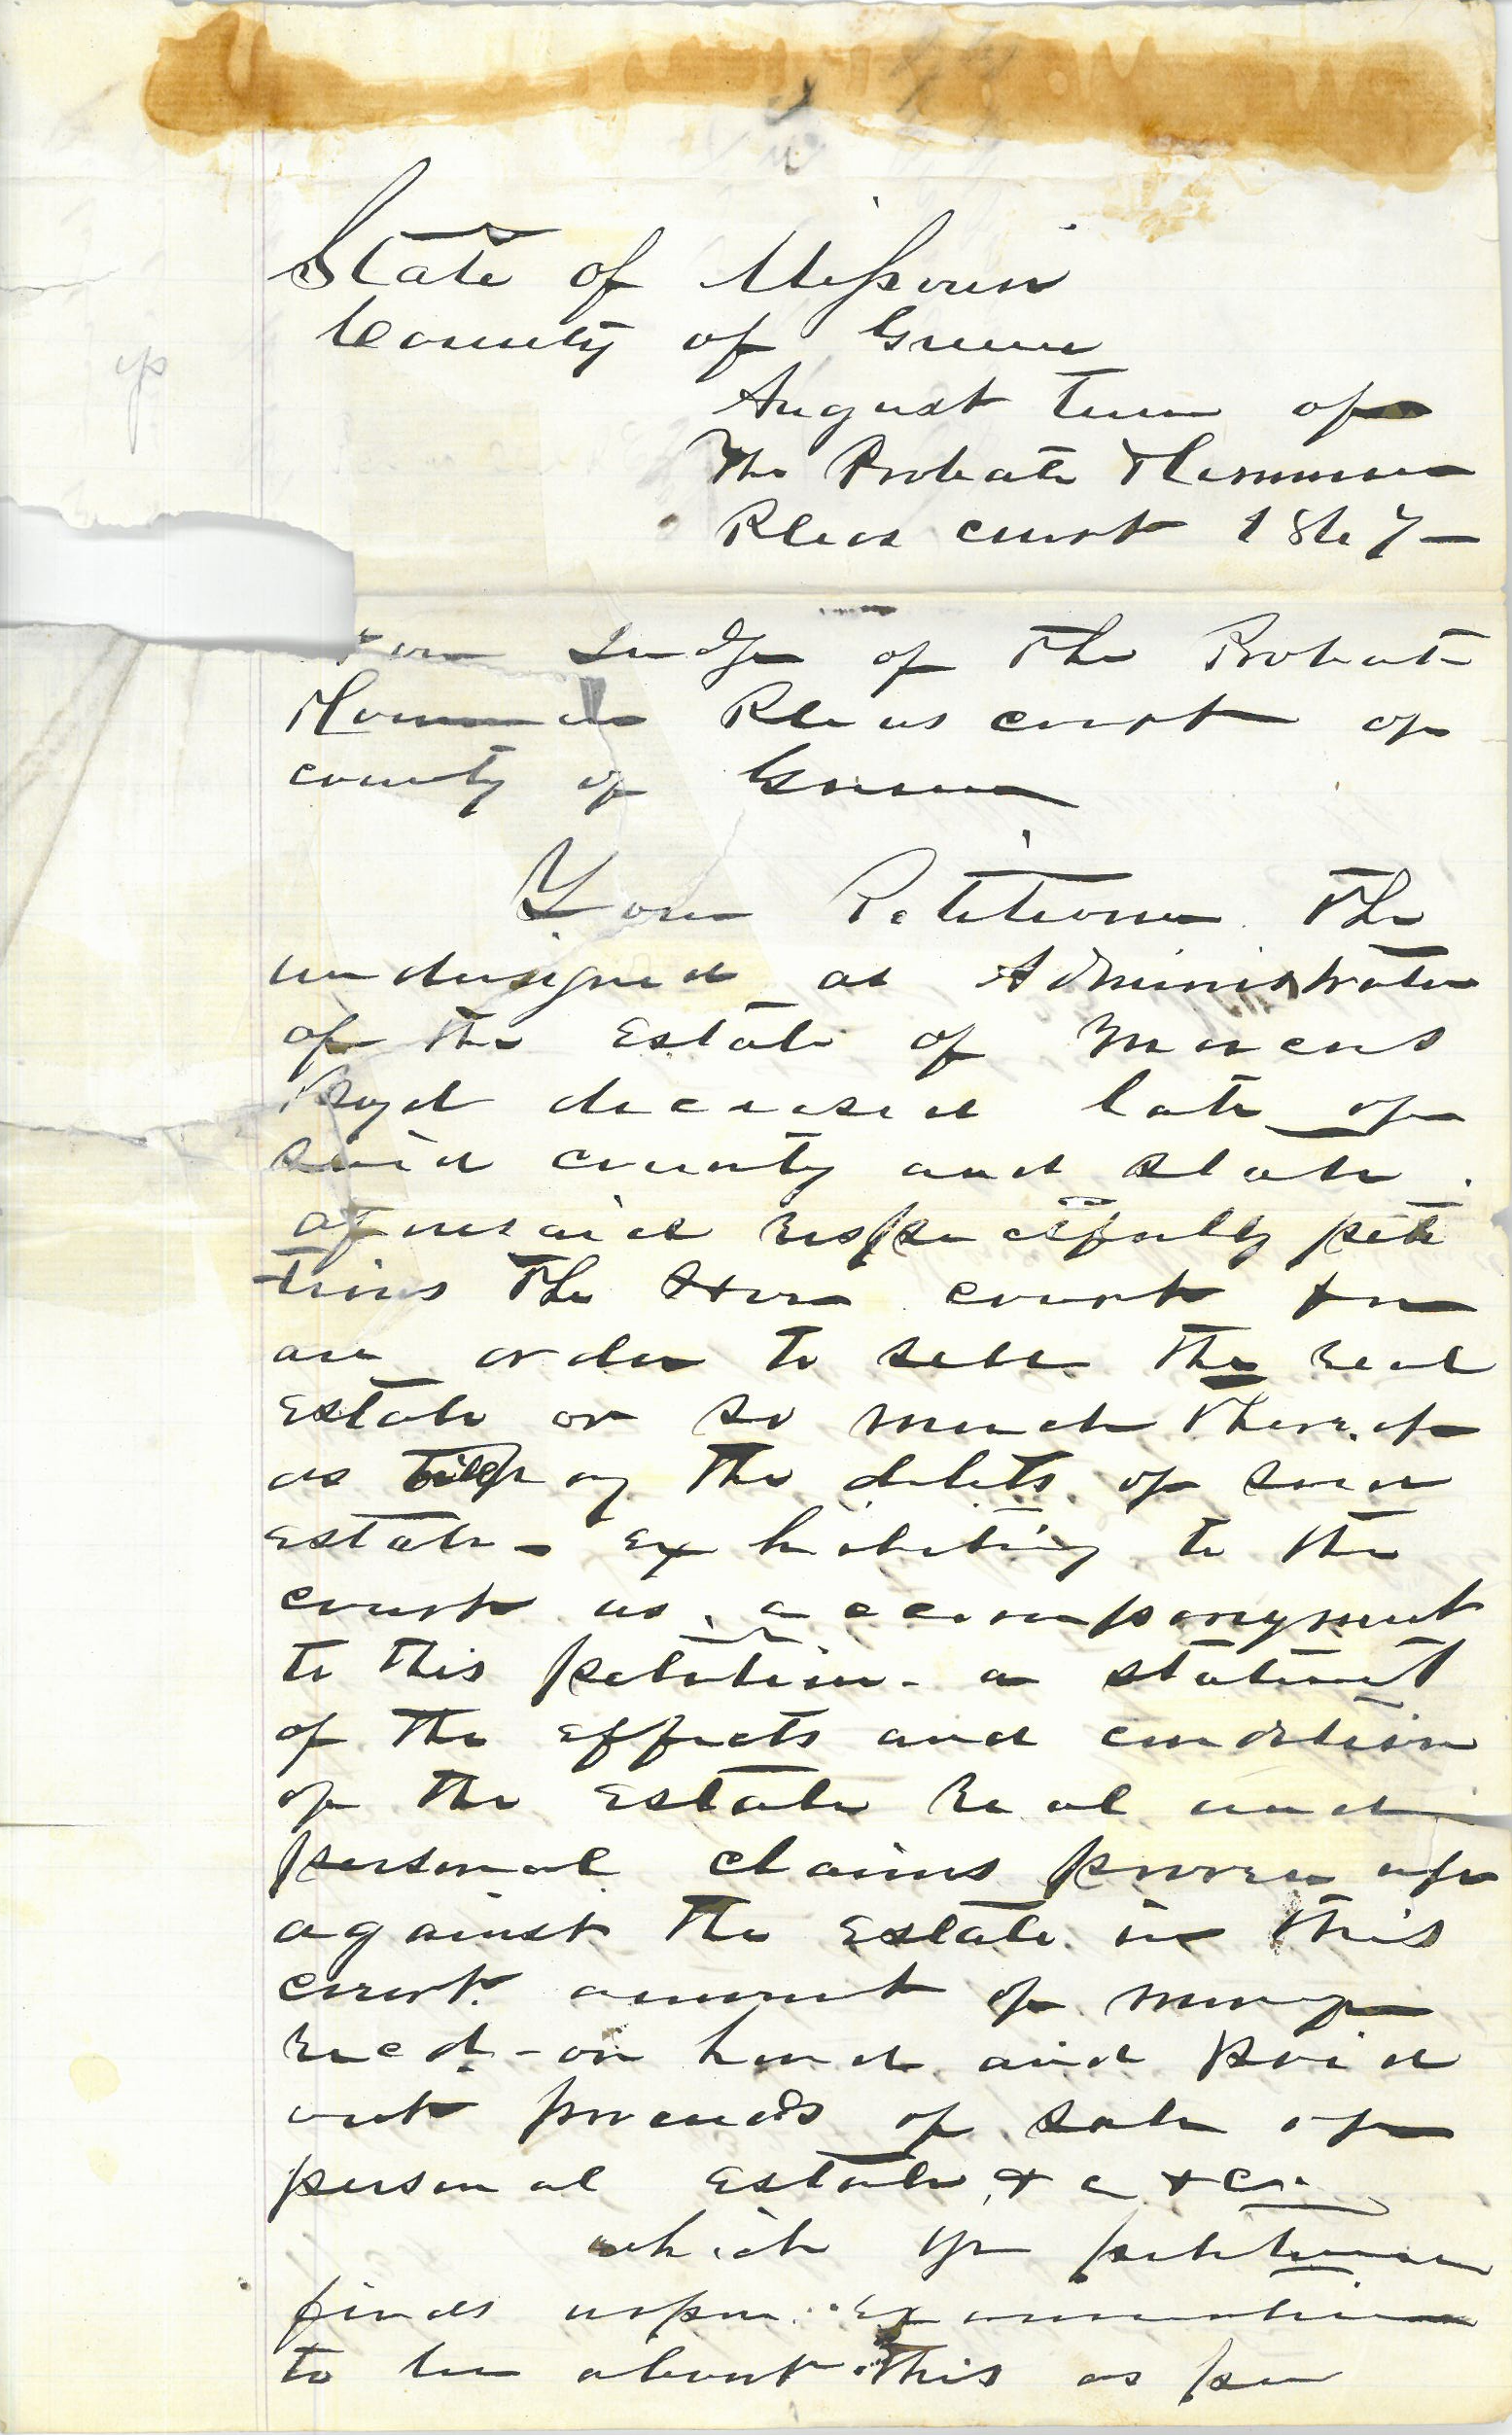 State of Missouri
County of Greene
August Term of
The Probate & Common
Pleas court 1867
Judge of the Probate
& Common Pleas court of
county of Greene
Your Petitioner The
undersigned as Administrator
of the Estate of Marcus
Boyd deceased late of
said county and state
aforesaid respectfully peti
tions The Hon court for
an order to sell the real
Estate or so much thereof
as will pay the debts of said
estate - Exhibiting to the
court as accompanyment
to this petition - a statement
of the effects and condition
of the Estate Real and
personal claims proven up
against the Estate in this
court. amount of money
recd - on hand and paid
out proceeds of sale of
personal Estate & c & c
which yr petitioner
finds upon Examination
to be about this as per